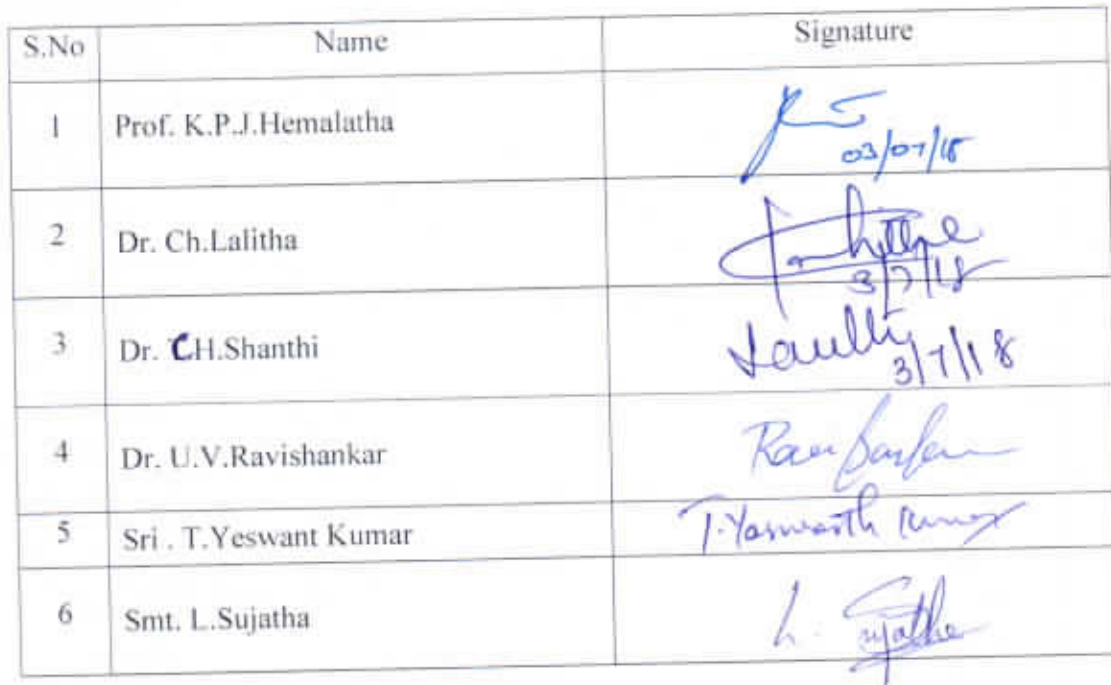 S.No Name Signature
1 Prof. K.P.J.Hemalatha
03/07/18
2 Dr. Ch.Lalitha
3/7/18
3 Dr. CH.Shanthi
3/7/18
4 Dr. U.V.Ravishankar
5 Sri . T.Yeswant Kumar T.Yaswanth Kumar
6 Smt. L.Sujatha L. Sujatha